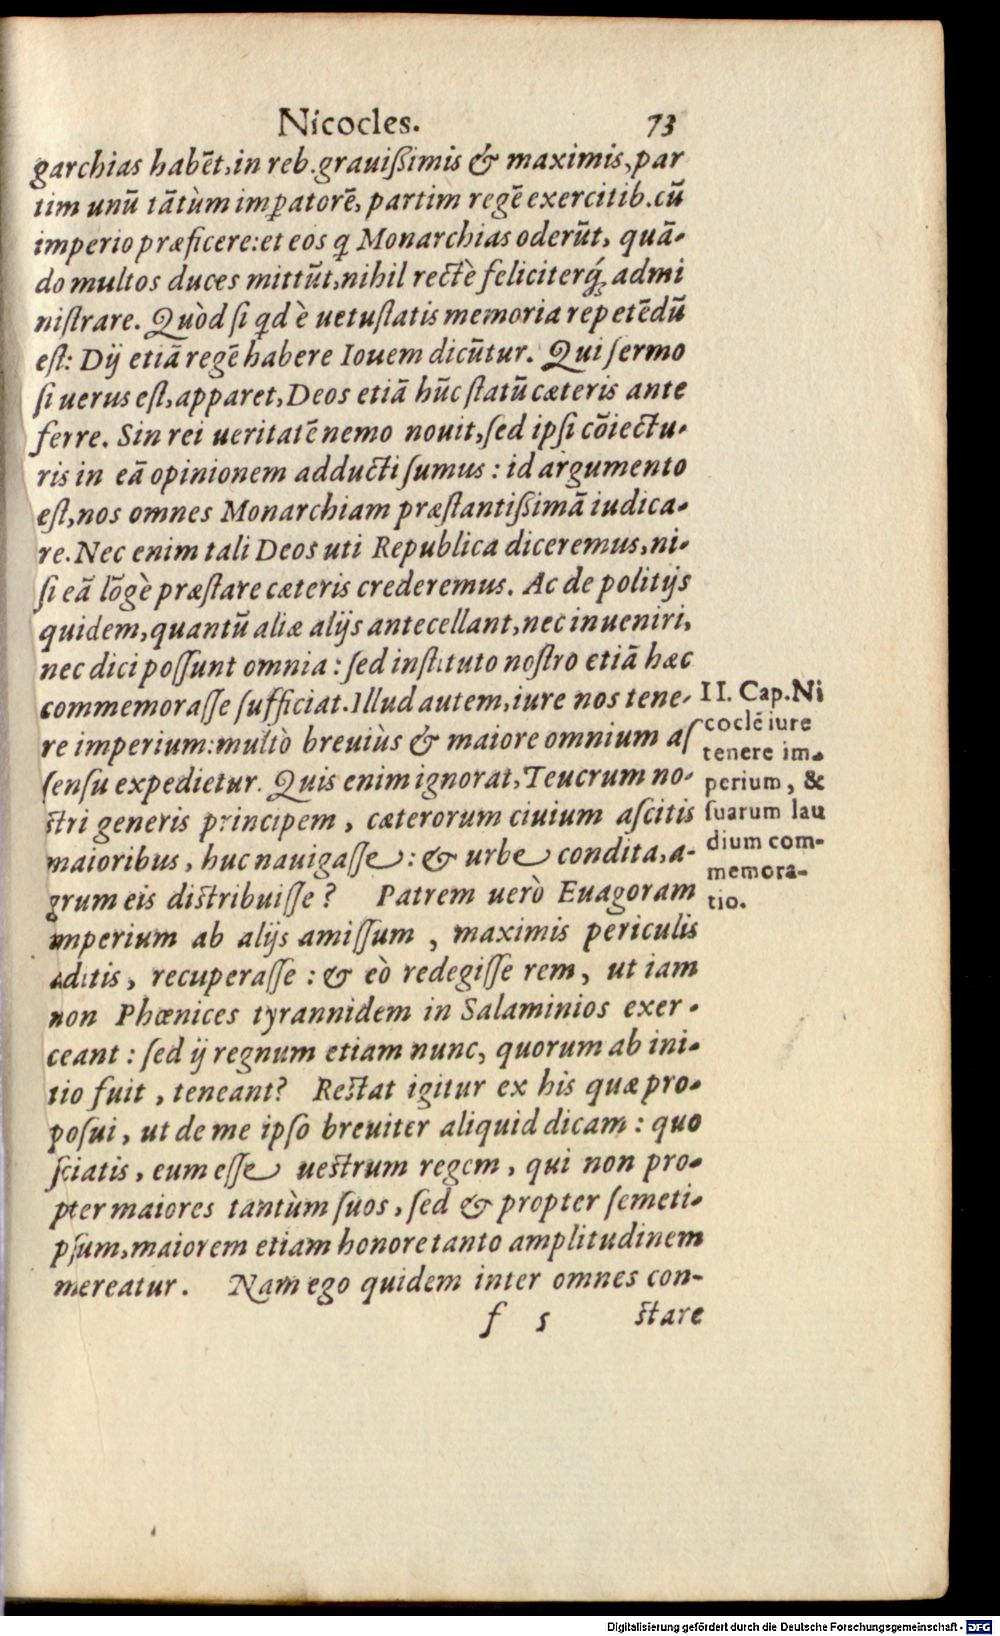 Nicocles. 73
garchias habēt, in reb. grauißimis & maximis, par
tim unū tātùm imꝑatorē, partim regē exercitib. cū
imperio præficere: et eos ꝗ Monarchias oderūt, quā-
do multos duces mittūt, nihil rectè feliciterq́; admi
nistrare. Quòd si ꝗd è uetustatis memoria repetēdū
est: Dij etiā regē habere Iouem dicūtur. Qui sermo
si uerus est, apparet, Deos etiā hūc statū cæteris ante
ferre. Sin rei ueritatē nemo nouit, sed ipsi cōiectu-
ris in eā opinionem adducti sumus: id argumento
est, nos omnes Monarchiam præstantißimā iudica-
re. Nec enim tali Deos uti Republica diceremus, ni-
si eā lōgè præstare cæteris crederemus. Ac de politijs
quidem, quantū aliæ alijs antecellant, nec inueniri,
nec dici possunt omnia: sed instituto nostro etiā hæc
commemorasse sufficiat. Illud autem, iure nos tene-
re imperium: multò breuiùs & maiore omnium as
sensu expedietur. Quis enim ignorat, Teucrum no-
stri generis principem, cæterorum ciuium ascitis
maioribus, huc nauigasse: & urbe condita, a-
grum eis distribuisse? Patrem uerò Euagoram
imperium ab alijs amissum, maximis periculis
aditis, recuperasse: & eò redegisse rem, ut iam
non Phœnices tyrannidem in Salaminios exer-
ceant: sed ij regnum etiam nunc, quorum ab ini-
tio fuit, teneant? Restat igitur ex his quæ pro-
posui, ut de me ipso breuiter aliquid dicam: quo
sciatis, eum esse uestrum regem, qui non pro-
pter maiores tantùm suos, sed & propter semeti-
psum, maiorem etiam honore tanto amplitudinem
mereatur. Nam ego quidem inter omnes con-
f s stare
II. Cap. Ni
coclē iure
tenere im-
perium, &
suarum lau
dium com-
memora-
tio.
Digitalisierung gefördert durch die Deutsche Forschungsgemeinschaft - DFG